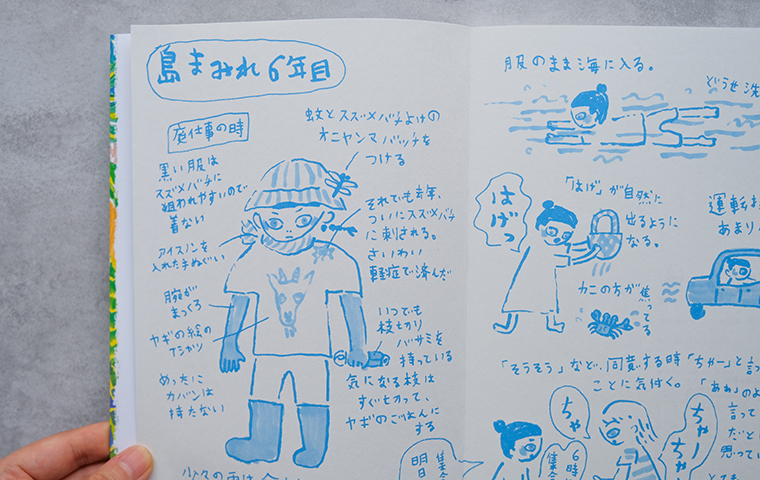 島まみれ6年目
庭仕事の時
蚊とスズメバチよけの
オニヤンマバッチを
つける
黒い服は
スズメバチに
狙われやすいので
着ない
それでも去年、
ついにスズメバチ
に刺される。
さいわい
軽症で済んだ
アイスノンを
入れた手ぬぐい
両腕が
まっくろ
ヤギの絵の
Tシャツ
めったに
カバンは
持たない
いつでも
枝切り
バサミを
持っている
気になる枝は
すぐ切って、
ヤギのごはんに
する
服のまま海に入る。
どうせ洗
はげっ
「はげ」が自然に
出るように
なる。
カニの方が焦ってる
運転
あまり
「そうそう」など、同意する時「ちゃー」と言っ
ことに気付く。
「あぁ」のよ
言って
だと
思ってい
ちゃー
ちゃーちゃー
6時
集合
集合
明日